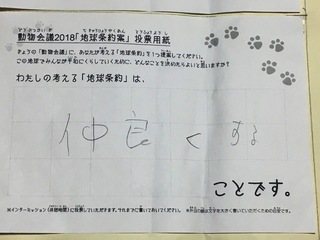 動物会議2018「地球条約案」投票用紙
きょうの「動物会議」に、あなたが考える「地球条約」を1つ提案してください。
この地球でみんなが平和にくらしていくために、どんなことを決めたらよいと思いますか?
わたしの考える「地球条約」は、
仲良くする
ことです。
※インターミッション(休憩時間)に投票していただきます。それまでに書いておいてください。